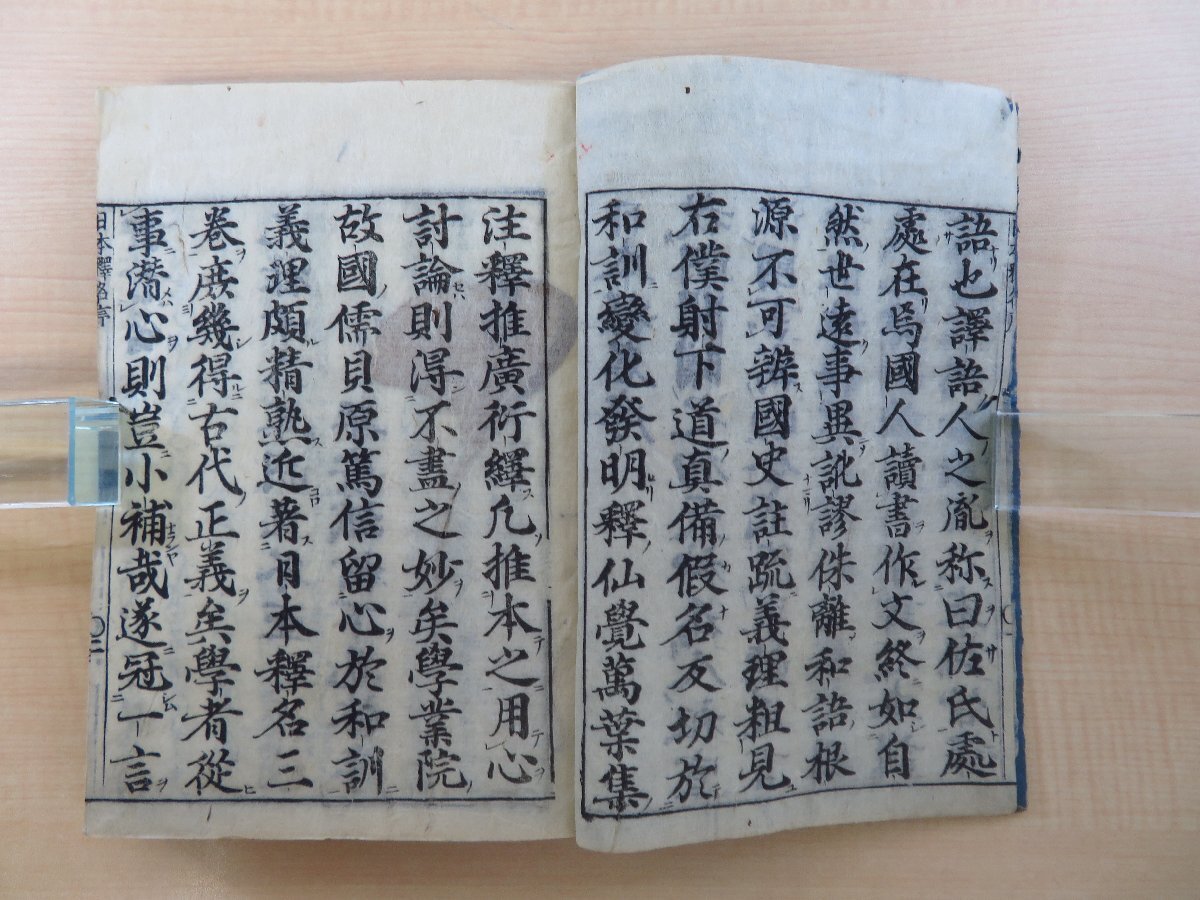 語也譯語人之胤称曰佐氏處
處在焉國人讀書作文終如自
然世遠事異訛謬侏離和語根
源不可辨國史註疏義理粗見
右僕射下道真備假名反切於
和訓變化發明釋仙覺萬葉集
注釋推廣衍繹凡推本之用心
討論則得不盡之妙矣學業院
故國儒貝原篤信留心於和訓
義理頗精熟近著日本釋名三
卷庶幾得古代正義矣學者從
事潛心則豈小補哉遂冠一言
日本釋名序